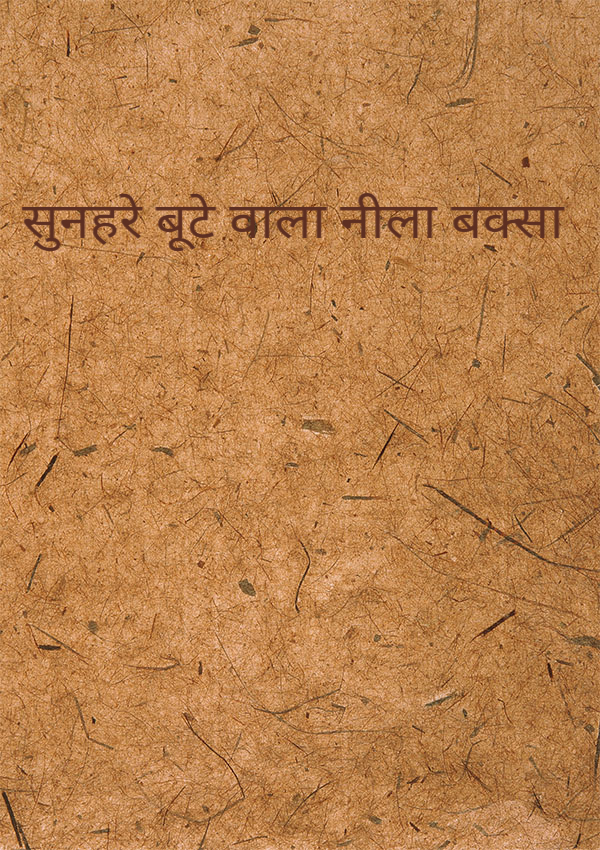 सुनहरे बूटे वाला नीला बक्सा